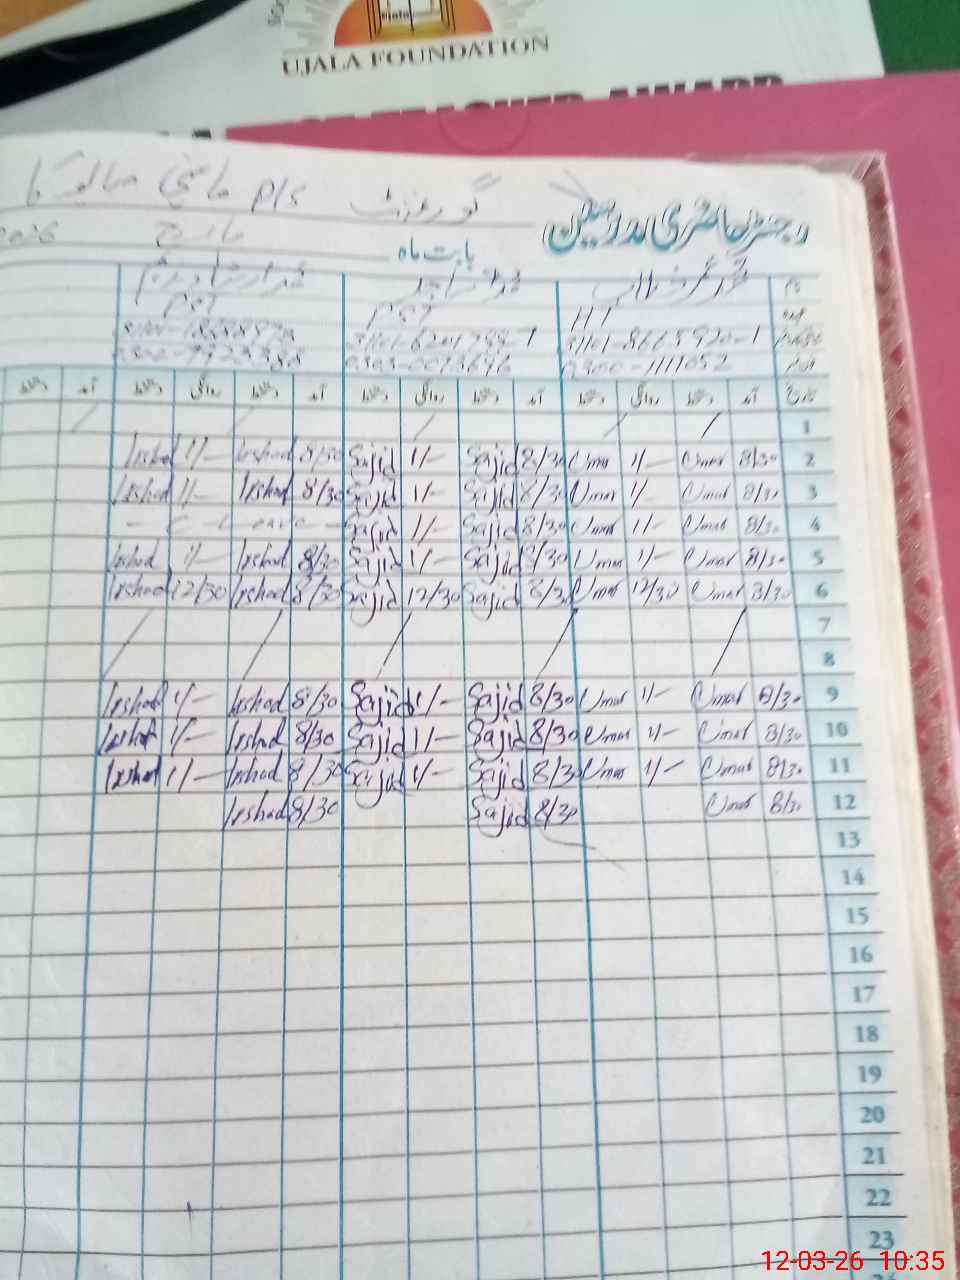 UJALA FOUNDATION
TEACHER AWARD
گورنمنٹ P/S
رجسٹر حاضری مدرسین
بابت ماہ مارچ 2026
نام
عہدہ HT PST PST
31101-8665920-1
0300-1111052
تاریخ آمد دستخط روانگی دستخط آمد دستخط روانگی دستخط آمد دستخط روانگی دستخط آمد دستخط
1
2 8/30 Umar 1/- Umar 8/30 Sajid 1/- Sajid 8/30 Irshad 1/- Irshad
3 8/30 Umar 1/- Umar 8/30 Sajid 1/- Sajid 8/30 Irshad 1/- Irshad
4 8/30 Umar 1/- Umar 8/30 Sajid 1/- Sajid - C - Leave -
5 8/30 Umar 1/- Umar 8/30 Sajid 1/- Sajid 8/30 Irshad 1/- Irshad
6 8/30 Umar 12/30 Umar 8/30 Sajid 12/30 Sajid 8/30 Irshad 12/30 Irshad
7
8
9 8/30 Umar 1/- Umar 8/30 Sajid 1/- Sajid 8/30 Irshad 1/- Irshad
10 8/30 Umar 1/- Umar 8/30 Sajid 1/- Sajid 8/30 Irshad 1/- Irshad
11 8/30 Umar 1/- Umar 8/30 Sajid 1/- Sajid 8/30 Irshad 1/- Irshad
12 8/30 Umar 8/30 Sajid 8/30 Irshad
13
14
15
16
17
18
19
20
21
22
23
12-03-26 10:35